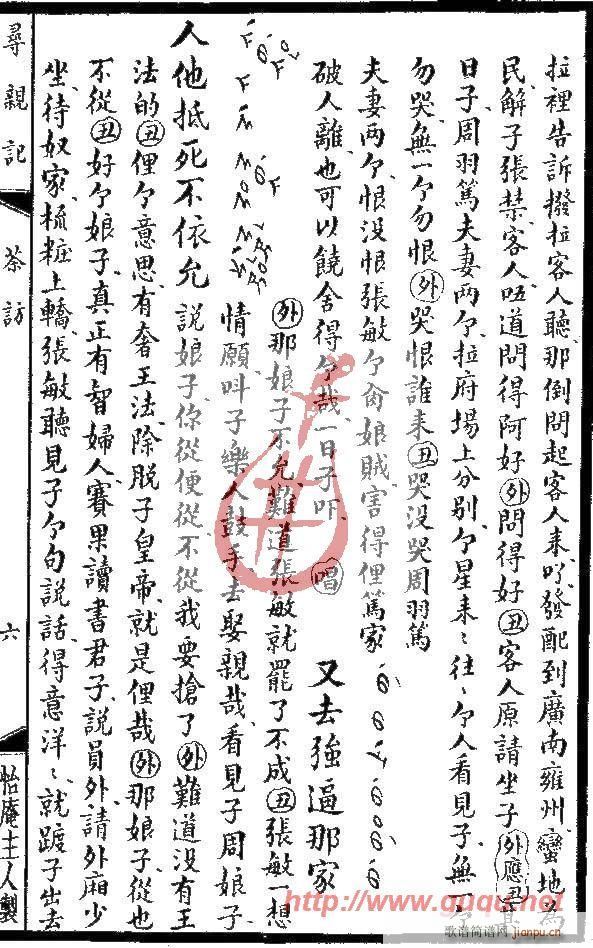 拉裡告訴撥拉客人聽、那倒問起客人來吖、發配到廣南雍州、蠻地為
民、解子張禁、客人唔道問得阿好、外問得好、丑客人原請坐子、外應丑
日子周羽篤夫妻兩个、拉府場上分别、个星來〻往〻个人看見子、無一
勿哭、無一个勿恨、外哭恨誰來、丑哭没哭周羽篤
夫妻兩个、恨没恨張敏个肏娘賊、害得俚篤家
破人離也可以饒舍得个哉、一日子吓、唱又去強逼那家
外那娘子不允、難道張敏就罷了不成、丑張敏一想
情願叫子樂人鼓手去娶親哉、看見子周娘子
人他抵死不依允説娘子你從便從不從我要搶了、外難道没有王
法的、丑俚个意思、有奢王法、除脱子皇帝、就是俚哉、外那娘子從也
不從、丑好个娘子、真正有智婦人、賽果讀書君子、説員外、請外廂少
坐、待奴家梳粧上轎、張敏聽見子个句説話、得意洋〻、就踱子出去
尋親記
茶訪
六
怡庵主人製
http://www.guqu.net
歌谱简谱网
jianpu.cn